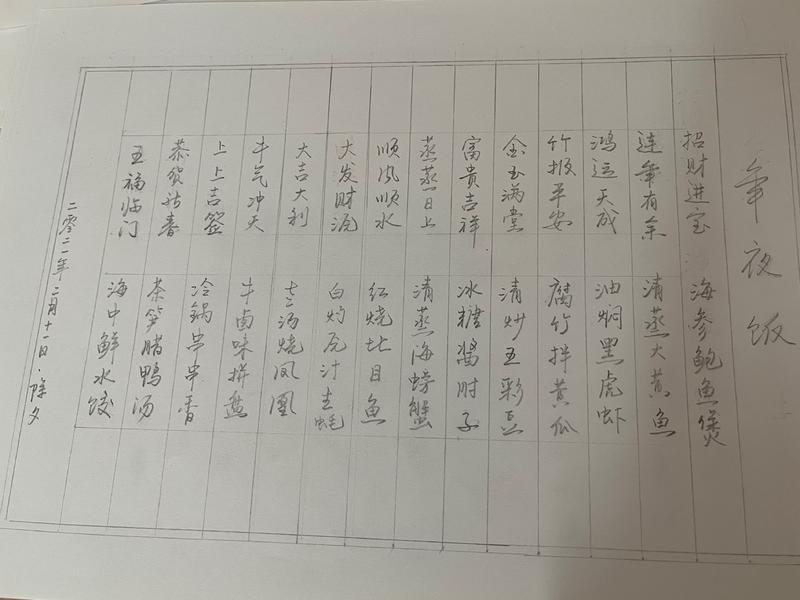 年夜饭
招财进宝 海参鲍鱼煲
连年有余 清蒸大黄鱼
鸿运天成 油焖黑虎虾
竹报平安 腐竹拌黄瓜
金玉满堂 清炒五彩豆
富贵吉祥 冰糖酱肘子
蒸蒸日上 清蒸海螃蟹
顺风顺水 红烧比目鱼
大发财源 白灼原汁生蚝
大吉大利 汤烧凤凰
牛气冲天 牛卤味拼盘
上上吉签 冷锅串串香
恭贺新春 茶笋腊鸭汤
五福临门 海中鲜水饺
二零二一年二月十一日·除夕